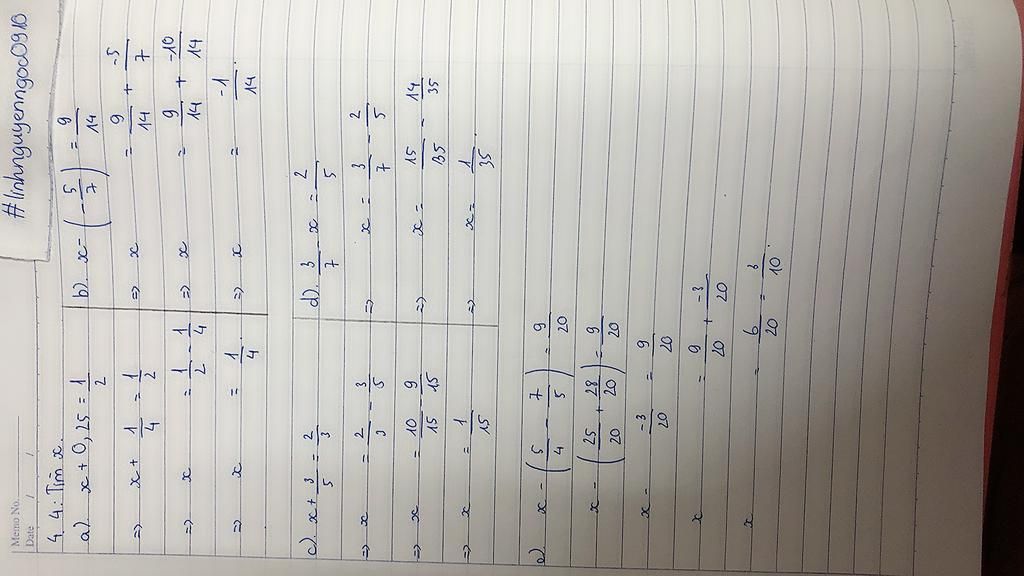 #linhnguyenngoc0910
Memo No.
Date / /
4.4: Tìm x.
a). x + 0,25 = 1/2
=> x + 1/4 = 1/2
=> x = 1/2 - 1/4
=> x = 1/4
b). x - (-5/7) = 9/14
=> x = 9/14 + -5/7
=> x = 9/14 + -10/14
=> x = -1/14
c). x + 3/5 = 2/3
=> x = 2/3 - 3/5
=> x = 10/15 - 9/15
=> x = 1/15
d). 3/7 - x = 2/5
=> x = 3/7 - 2/5
=> x = 15/35 - 14/35
=> x = 1/35
e). x - (5/4 - 7/5) = 9/20
x - (25/20 + 28/20) = 9/20
x - -3/20 = 9/20
x = 9/20 + -3/20
x = 6/20 = 3/10.